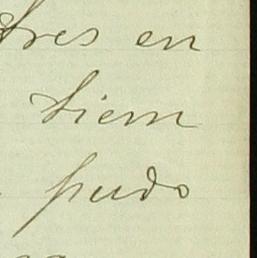 tres en
tiem
pudo